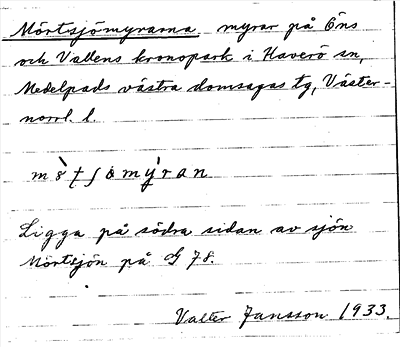 Mörtsjömyrarna myrar på Öns
och Vallens kronopark i Haverö sn,
Medelpads västra domsagas tg, Väster-
norrl. l.
Ligga på södra sidan av sjön
Mörtsjön på 78.
Valter Jansson 1933.